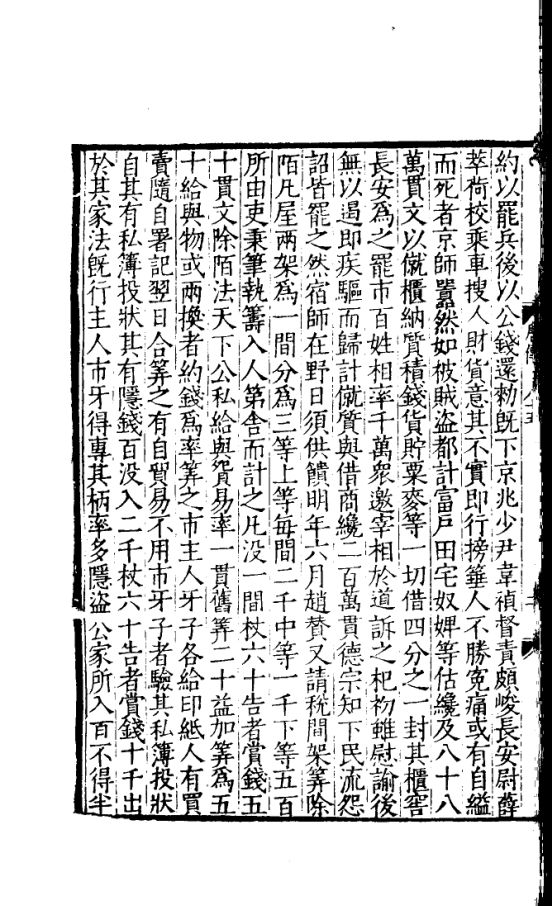 約以罷兵後以公錢還勑旣下京兆少尹韋禎督責頗峻長安尉薛
萃荷校乘車搜人財貨意其不實即行搒箠人不勝寃痛或有自縊
而死者京師嚻然如被賊盗都計富戸田宅奴婢等估纔及八十八
萬貫文以僦櫃納質積錢貨貯粟麥等一切借四分之一封其櫃窖
長安爲之罷市百姓相率千萬衆邀宰相於道訴之杞初雖慰諭後
無以遏即疾驅而歸計僦質與借商纔二百萬貫德宗知下民流怨
詔皆罷之然宿師在野日須供饋明年六月趙賛又請稅間架筭除
陌凡屋兩架爲一間分爲三等上等每間二千中等一千下等五百
所由吏秉筆執籌入人第舍而計之凡没一間杖六十告者賞錢五
十貫文除陌法天下公私給與貿易率一貫舊筭二十益加筭爲五
十給與物或兩換者約錢爲率筭之市主人牙子各給印紙人有買
賣隨自署記翌日合筭之有自貿易不用市牙子者驗其私簿投狀
自其有私簿投狀其有隱錢百没入二千杖六十告者賞錢十千出
於其家法旣行主人市牙得專其柄率多隱盗公家所入百不得半